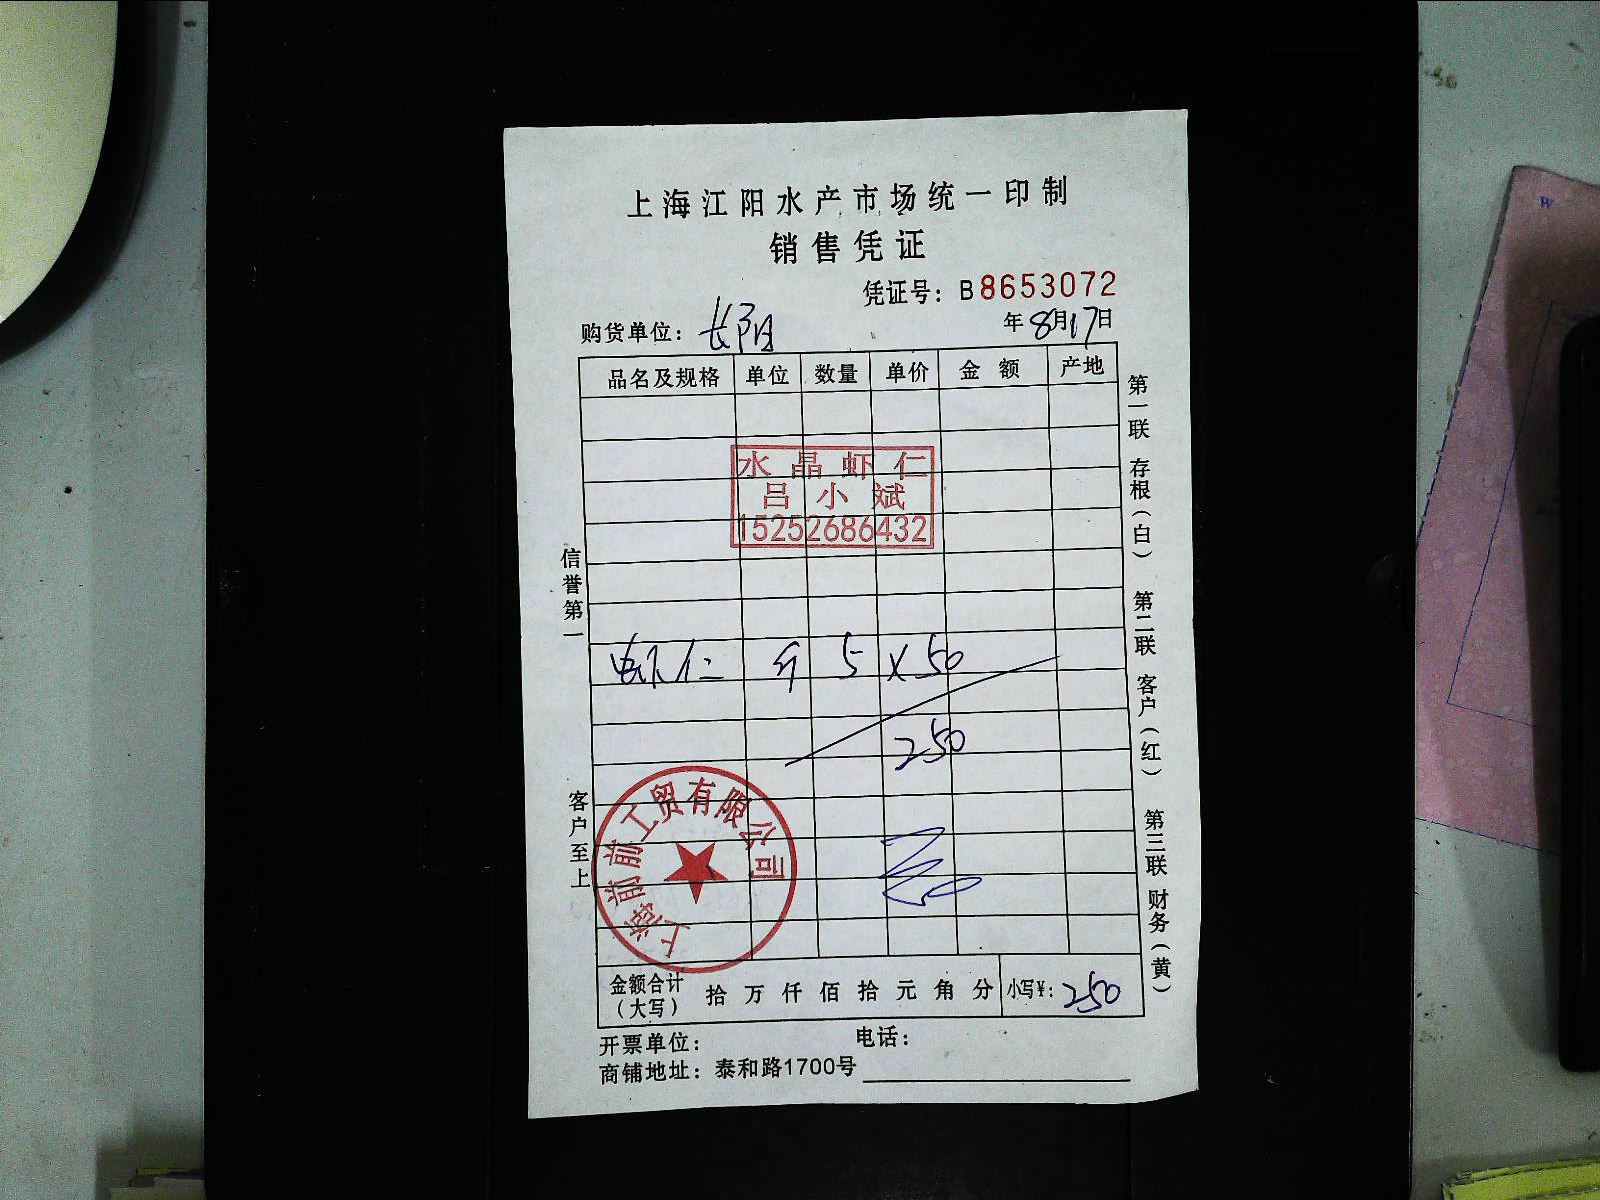 上海江阳水产市场统一印制
销售凭证
凭证号：B8653072
购货单位：长阳 年8月17日
品名及规格 单位 数量 单价 金额 产地
水晶虾仁
吕小斌
15252686432
虾仁 斤 5 × 50
250
上海前前工贸有限公司
金额合计（大写） 拾 万 仟 佰 拾 元 角 分 小写¥：250
开票单位： 电话：
商铺地址：泰和路1700号
信誉第一 客户至上
第一联 存根（白） 第二联 客户（红） 第三联 财务（黄）
W